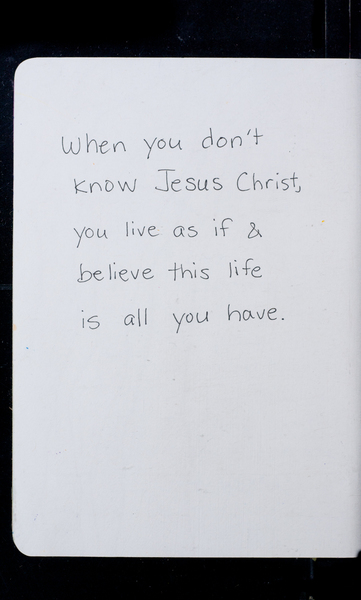 When you don't
know Jesus Christ,
you live as if &
believe this life
is all you have.